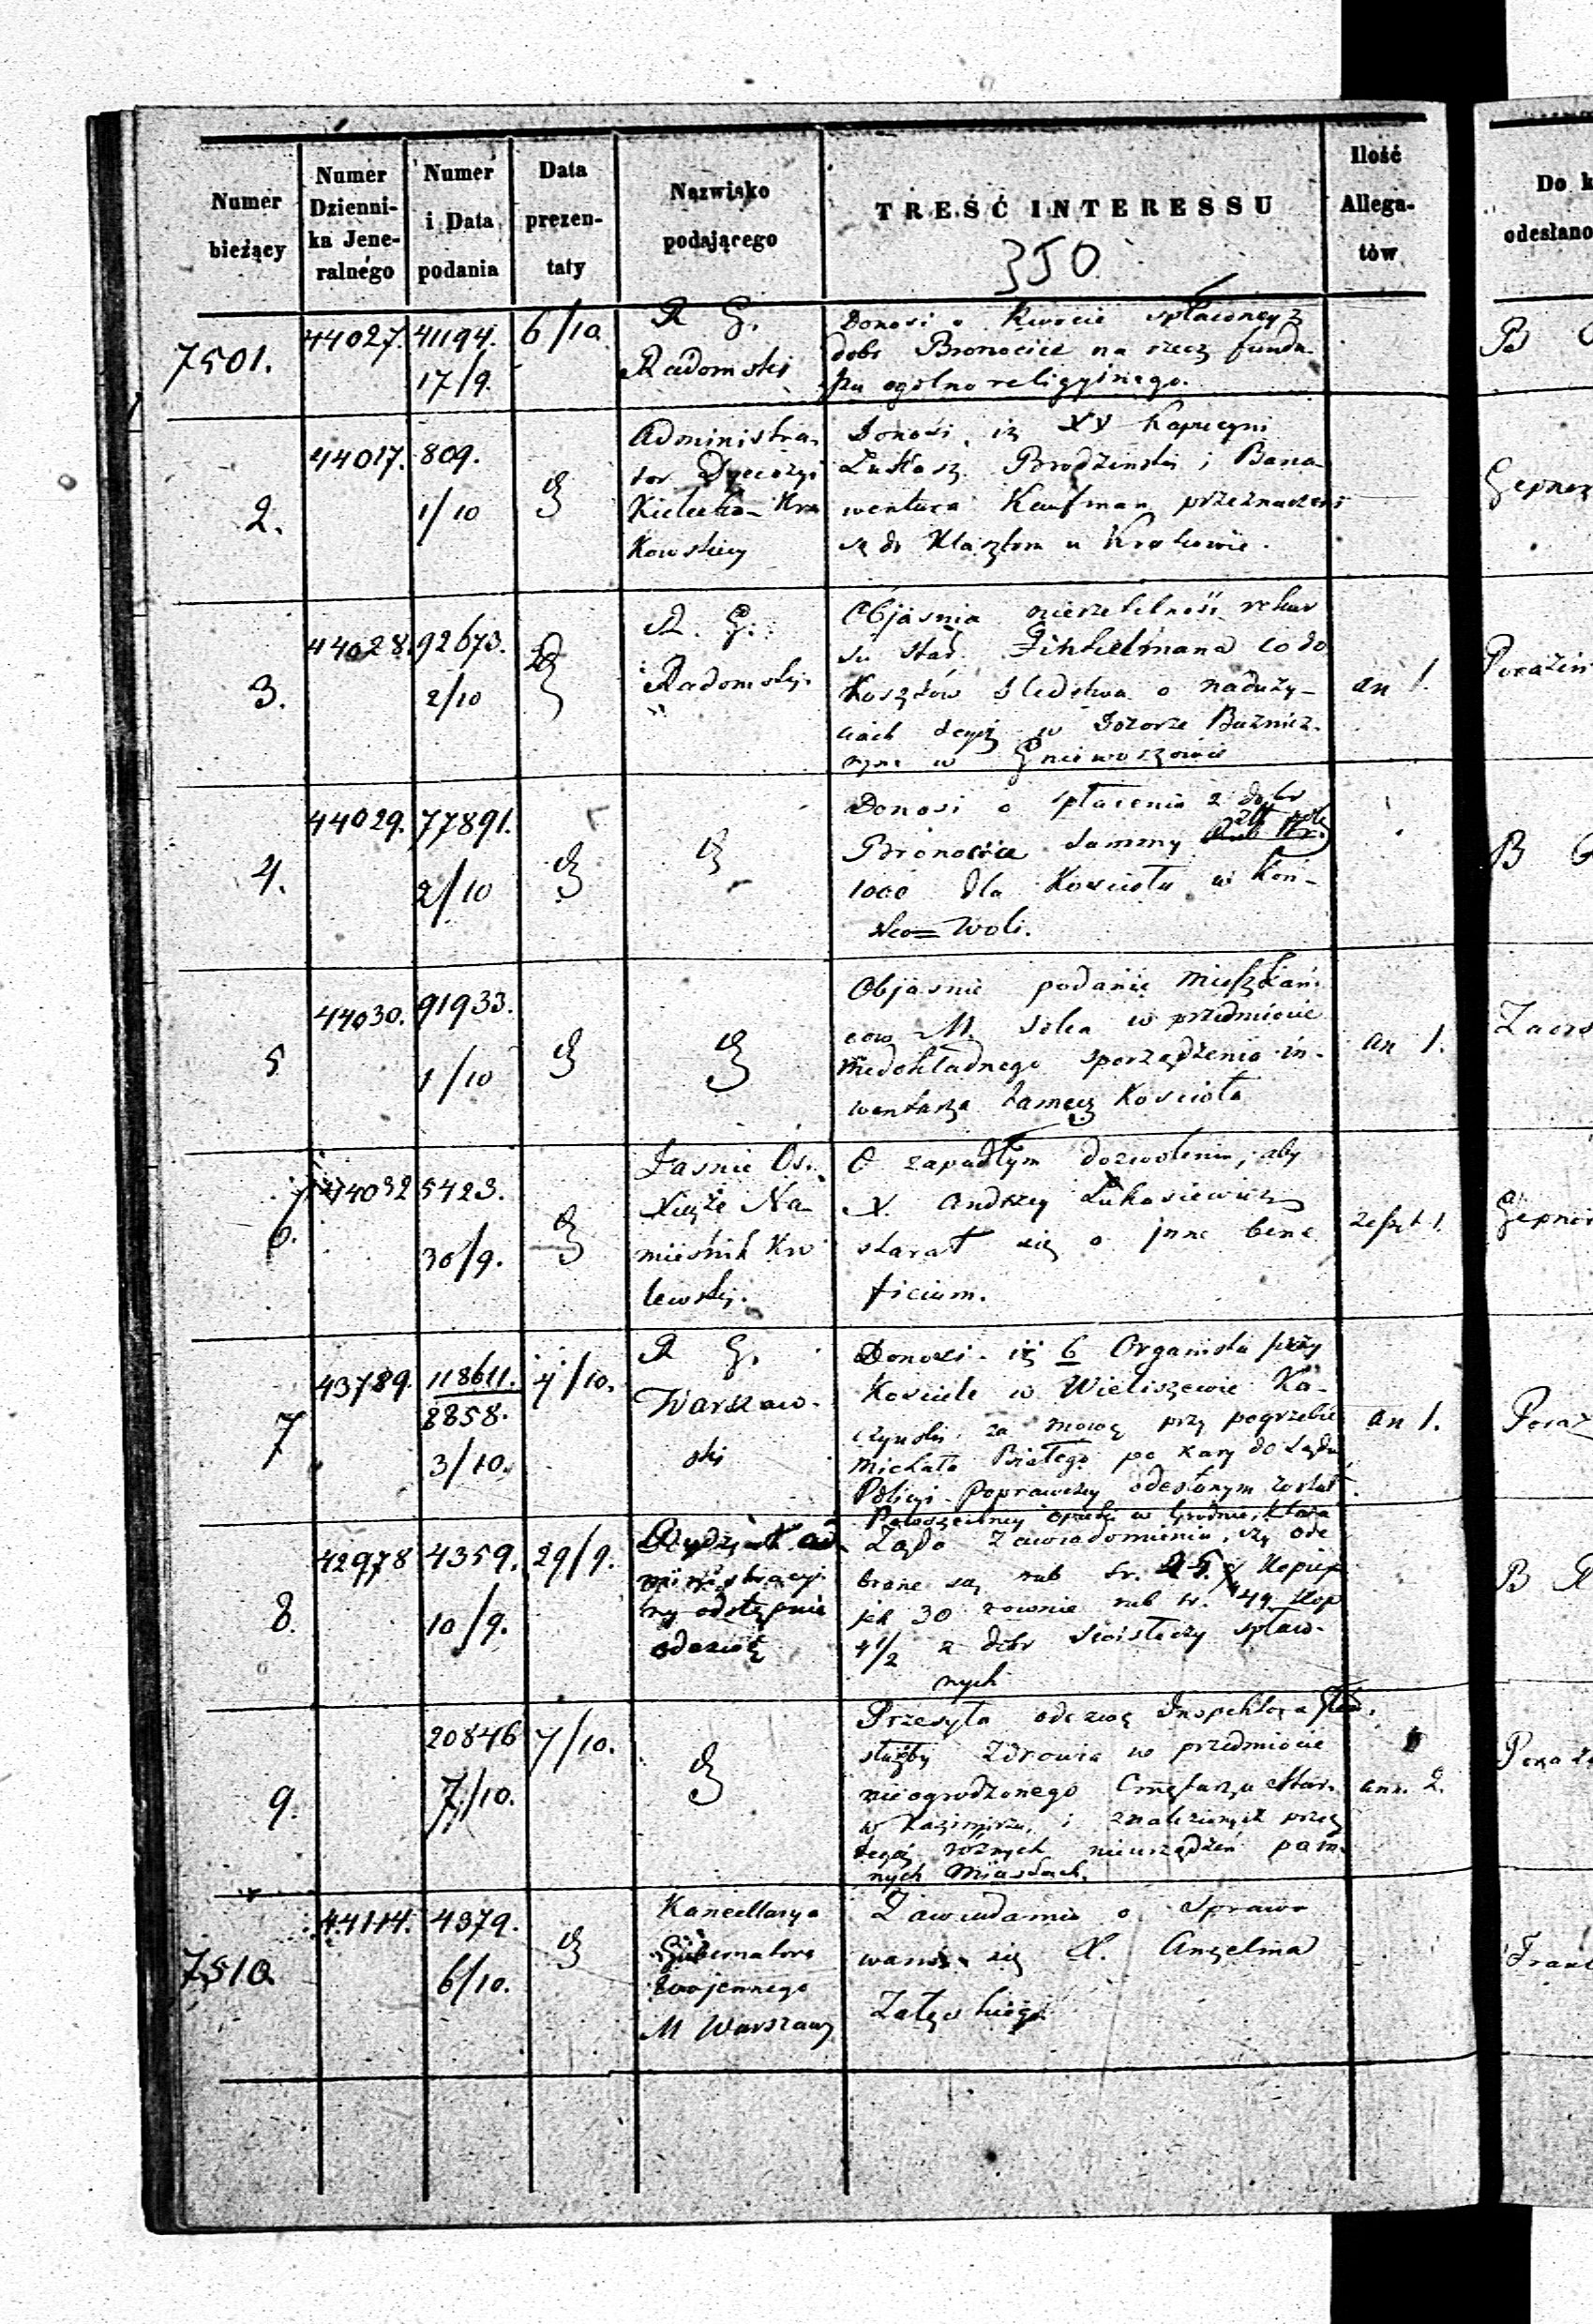 Numer bieżący
Numer Dzienni- ka Jene- ralnego
Numer i Data podania
Data prezen- taty
Nazwisko podającego
TREŚĆ INTERESSU
350
Ilość Allega- tów
Do k
odesłano
7501.
44027.
41194.
17/9.
6/10
R G.
Radomski
Donosi o kwocie spłaconey z
dobr Bronocice na rzecz fundu-
szu ogólno religyinego.
2.
44017.
809.
1/10
Administra-
tor Dyecezyi
Kielecko-Kra
kowskiey
Donosi, iż XX Kapucyni
Łukasz Brodziński i Bona-
wentura Kaufman przeznaczeni
są do Klasztoru w Krakowie.
3.
44028.
92673.
2/10
R. G.
Radomski
Objasnia nierzetelność rekur
su star. Finkielmana co do
Kosztów śledstwa o naduży-
ciach w Dozorze Bużnicz-
nym w Gniewoszowie
an 1.
4.
44029.
77891.
2/10
Donosi o spłaceniu z dobr
Bronocice summy
1000 dla Kościoła w Koń-
sko= Woli.
B
5
44030.
91933.
1/10
Objasnia podanie Mieszkań-
cow M. Solca w przedmiocie
niedokładnego sporządzenia in-
wentarza tamecz Kościoła
an 1.
6.
44032
5423.
30/9.
Jasnie Os.
Xiąże Na-
miestnik Kró
lewski.
O zapadłym dozwoleniu, aby
X. Andrzey Łukasiewicz
starał się o jnne bene
ficium.
zeszyt 1.
7
43789.
118611.
8858.
3/10.
4/10.
R G.
Warszaw-
ski
Donosi iż 6 Organista przy
Kosciele w Wieliszewie Ka-
czyński za mowę przy pogrzebie
Michała Białego po kary do Sądu
Policyi Poprawczey odesłanym został.
an 1.
8.
42978
4359.
10/9.
29/9.
odezwię
Żąda Zawiadomienia, czy ode
brane są rub sr. 25. Kopie
jek 30 rownie rub sr. 49 Kop
4 1/2 z dobr spław-
nych
B
9.
20846
7/10.
7/10.
Przesyła odezwę Inspektora
służby Zdrowia w przedmiocie
nieogrodzonego Cmętarza Star.
w Kazimirzu, i znalezionych przez
tegoż różnych nieurządzeń po in-
nych Miastach.
ann. 2.
7510.
44114.
4379.
6/10.
Kancellarya
Gubernatora
Wojennego
M Warszawy
Zawiadamia o sprawo
waniu się X. Anzelma
Załęskiego